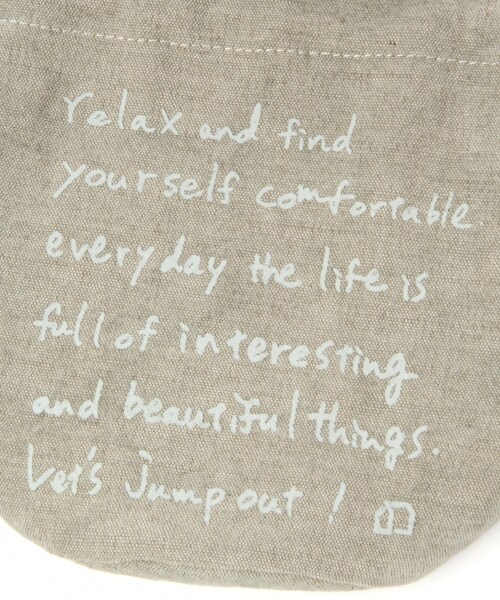 relax and find
yourself comfortable.
everyday the life is
full of interesting
and beautiful things.
Let's Jump out !